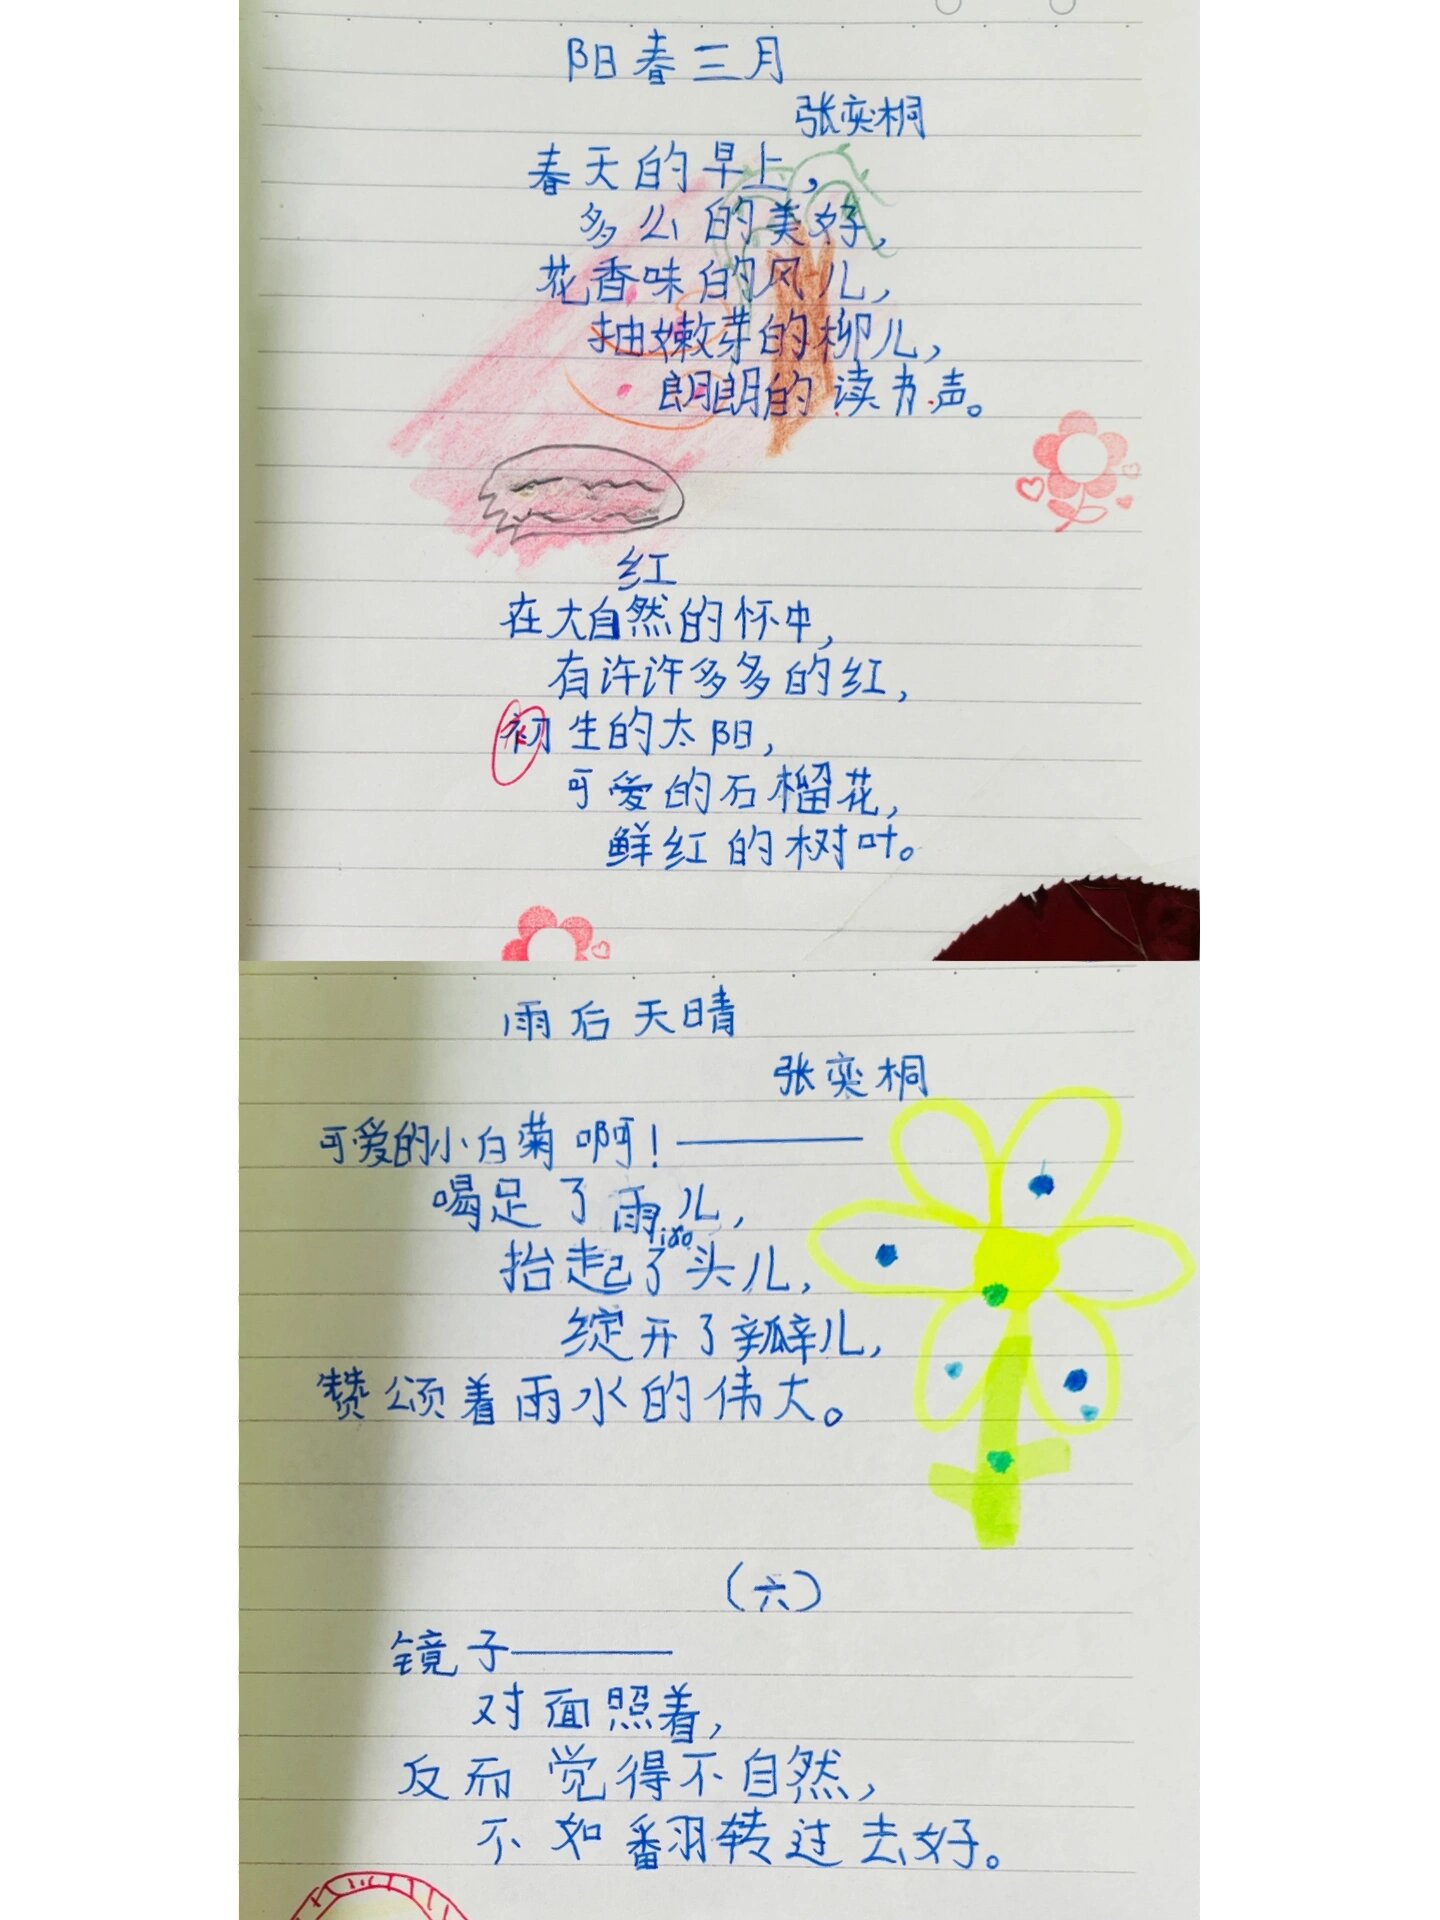 阳春三月
张奕桐
春天的早上，
多么的美好，
花香味的风儿，
抽嫩芽的柳儿，
朗朗的读书声。
红
在大自然的怀中，
有许许多多的红，
初生的太阳，
可爱的石榴花，
鲜红的树叶。
雨后天晴
张奕桐
可爱的小白菊啊！——
喝足了雨儿，
抬起了头儿，
绽开了瓣儿，
赞颂着雨水的伟大。
（六）
镜子——
对面照着，
反而觉得不自然，
不如翻转过去好。